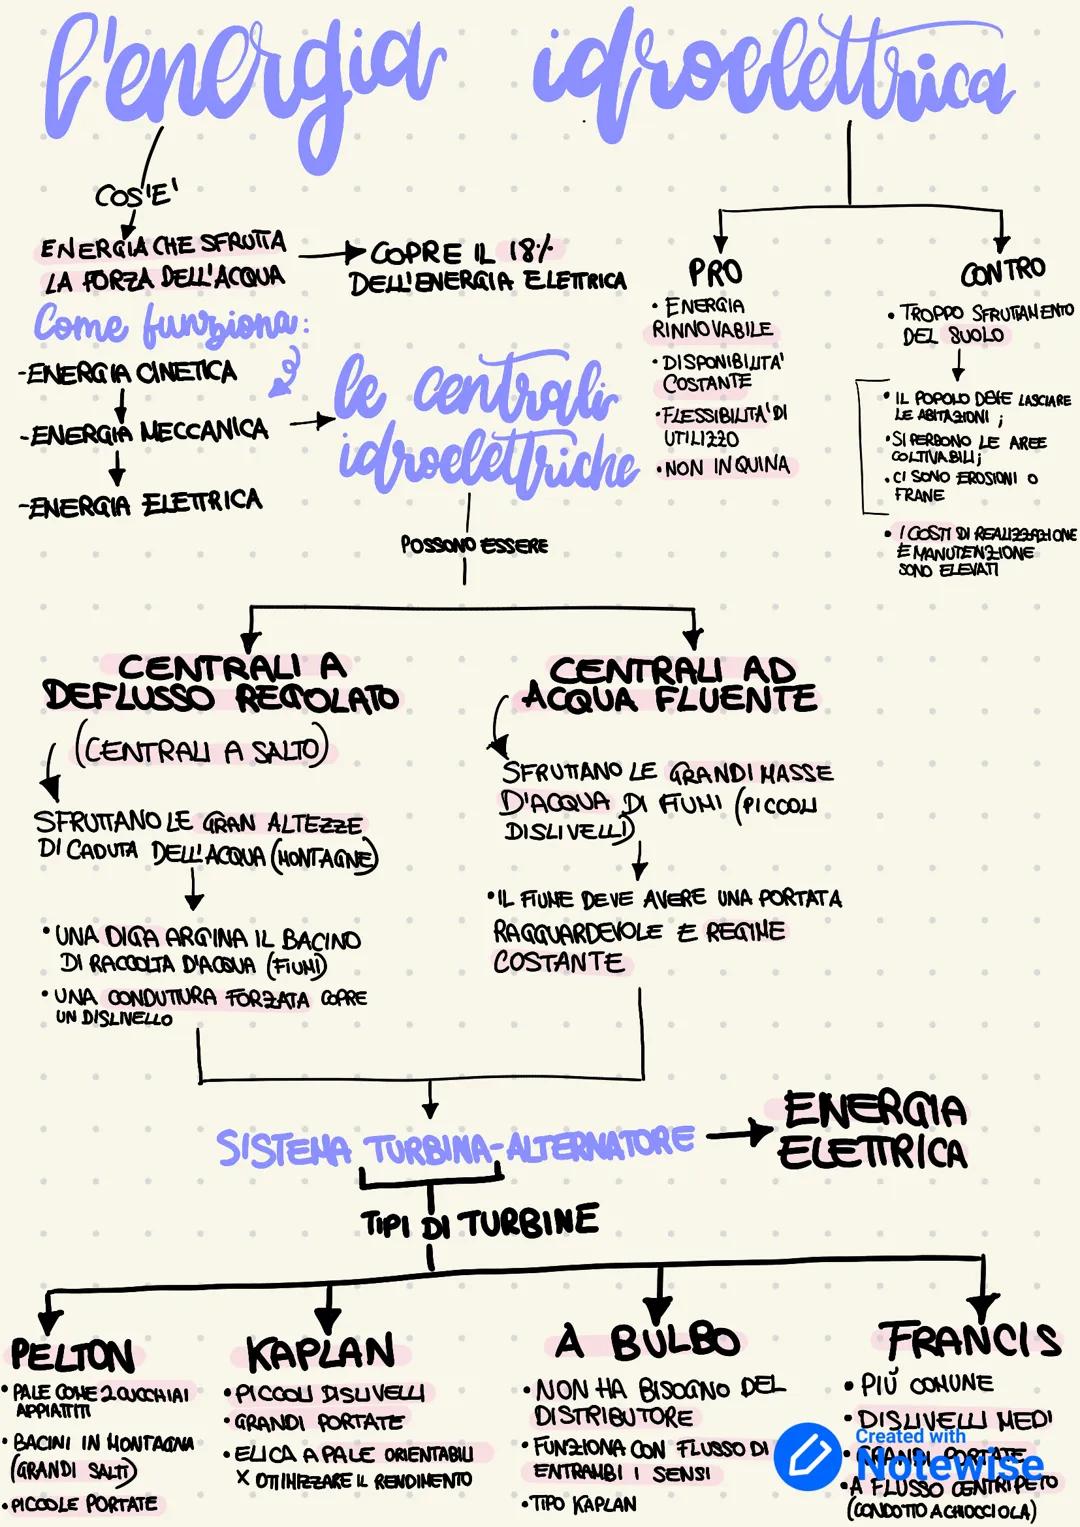 l'energia idroelettrica
COS'E'
ENERGIA CHE SFRUTTA
LA FORZA DELL'ACQUA
COPRE IL 18%
DELL'ENERGIA ELETTRICA
Come funziona:
-ENERGIA CINETICA
-ENERGIA MECCANICA
-ENERGIA ELETTRICA
le centrali
idroelettriche
PRO
• ENERGIA
RINNOVABILE
• DISPONIBILITA'
COSTANTE
• FLESSIBILITA' DI
UTILIZZO
• NON INQUINA
CONTRO
• TROPPO SFRUTAMENTO
DEL SUOLO
• IL POPOLO DEVE LASCIARE
LE ABITAZIONI;
• SI PERDONO LE AREE
COLTIVABILI;
• CI SONO EROSIONI O
FRANE
• I COSTI DI REALIZZAZIONE
E MANUTENZIONE
SONO ELEVATI
POSSONO ESSERE
CENTRALI A
DEFLUSSO REGOLATO
(CENTRALI A SALTO)
SFRUTTANO LE GRAN ALTEZZE
DI CADUTA DELL'ACQUA (MONTAGNE)
• UNA DIGA ARGINA IL BACINO
DI RACCOLTA D'ACQUA (FIUMI)
• UNA CONDUTTURA FORZATA COPRE
UN DISLIVELLO
CENTRALI AD
ACQUA FLUENTE
SFRUTTANO LE GRANDI MASSE
D'ACQUA DI FIUMI (PICCOLI
DISLIVELLI)
• IL FIUME DEVE AVERE UNA PORTATA
RAGGUARDEVOLE E REGIME
COSTANTE
SISTEMA TURBINA-ALTERNATORE
ENERGIA
ELETTRICA
TIPI DI TURBINE
PELTON
• PALE COME 2 CUCCHIAI
APPIATTITI
• BACINI IN MONTAGNA
(GRANDI SALTI)
• PICCOLE PORTATE
KAPLAN
• PICCOLI DISLIVELLI
• GRANDI PORTATE
• ELICA A PALE ORIENTABILI
X OTTIMIZZARE IL RENDIMENTO
A BULBO
• NON HA BISOGNO DEL
DISTRIBUTORE
• FUNZIONA CON FLUSSO DI
ENTRAMBI I SENSI
• TIPO KAPLAN
FRANCIS
• PIÙ COMUNE
• DISLIVELLI MEDI
• GRANDI PORTATE
• A FLUSSO CENTRIPETO
(CONDOTTO A CHIOCCIOLA)
Created with
Notewise